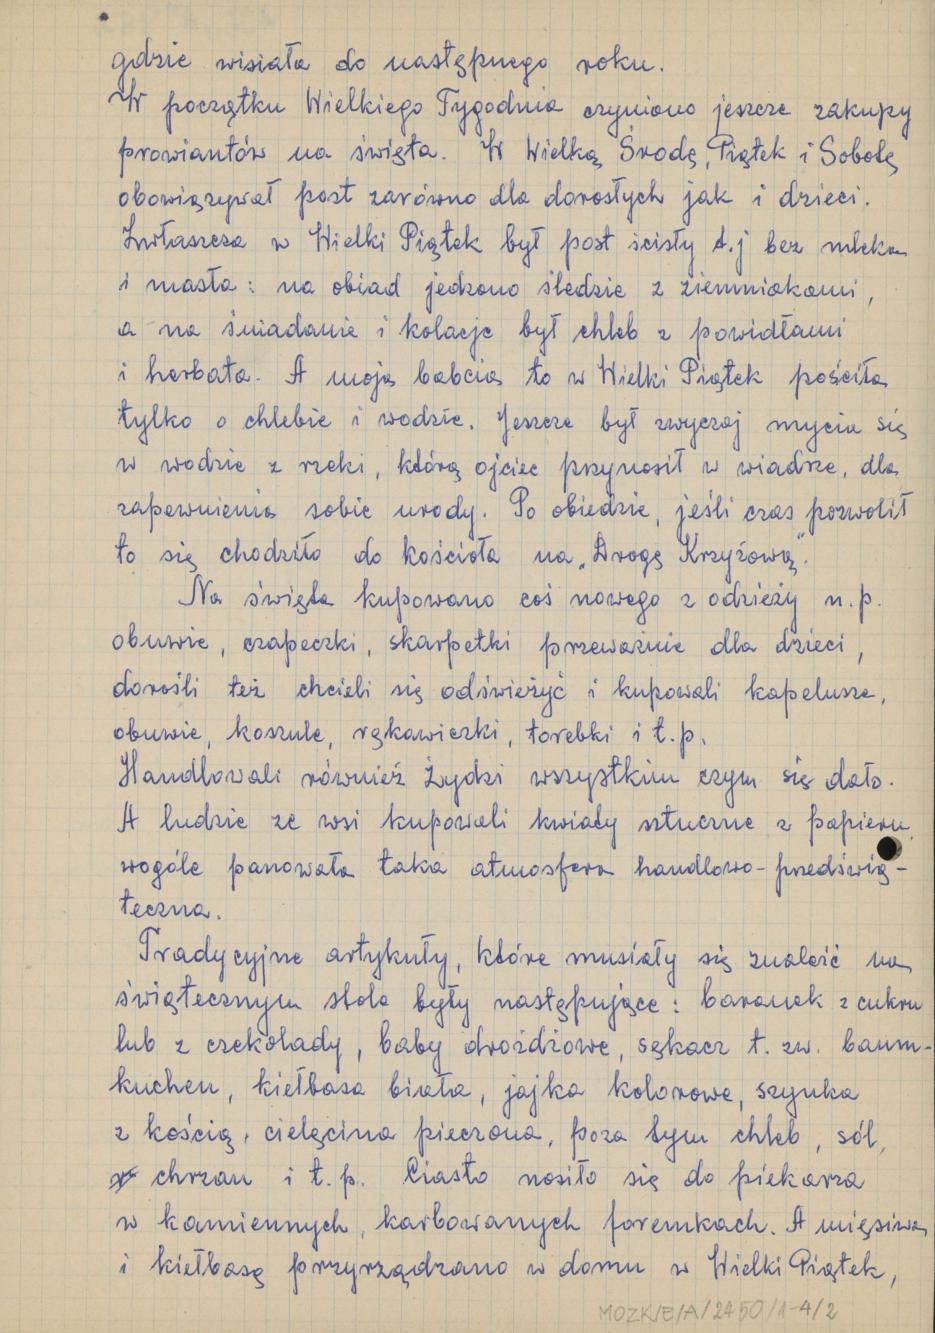 gdzie wisiała do następnego roku.
W początku Wielkiego Tygodnia czyniono jeszcze zakupy
prowiantów na święta. W Wielką Środę, Piątek i Sobotę
obowiązywał post zarówno dla dorosłych jak i dzieci.
Zwłaszcza w Wielki Piątek był post ścisły t.j bez mleka
i masła: na obiad jedzono śledzie z ziemniakami,
a na śniadanie i kolacje był chleb z powidłami
i herbata. A moja babcia to w Wielki Piątek pościła
tylko o chlebie i wodzie. Jeszcze był zwyczaj mycia się
w wodzie z rzeki, którą ojciec przynosił w wiadrze, dla
zapewnienia sobie urody. Po obiedzie, jeśli czas pozwolił
to się chodziło do kościoła na „Drogę Krzyżową".
Na święta kupowano coś nowego z odzieży n.p.
obuwie, czapeczki, skarpetki przeważnie dla dzieci,
dorośli też chcieli się odświeżyć i kupowali kapelusze,
obuwie, koszule, rękawiczki, torebki i t.p.
Handlowali również Żydzi wszystkim czym się dało.
A ludzie ze wsi kupowali kwiaty sztuczne z papieru,
wogóle panowała taka atmosfera handlowo-przedświą-
teczna.
Tradycyjne artykuły, które musiały się znaleść na
świątecznym stole były następujące: baranek z cukru
lub z czekolady, baby drożdżowe, sękacz t. zw. baum-
kuchen, kiełbasa biała, jajka kolorowe, szynka
z kością, cielęcina pieczona, poza tym chleb, sól,
chrzan i t.p. Ciasto nosiło się do piekarza
w kamiennych, karbowanych foremkach. A mięsiwa
i kiełbasę przyrządzano w domu w Wielki Piątek,
MOZK/E/A/2450/1-4/2